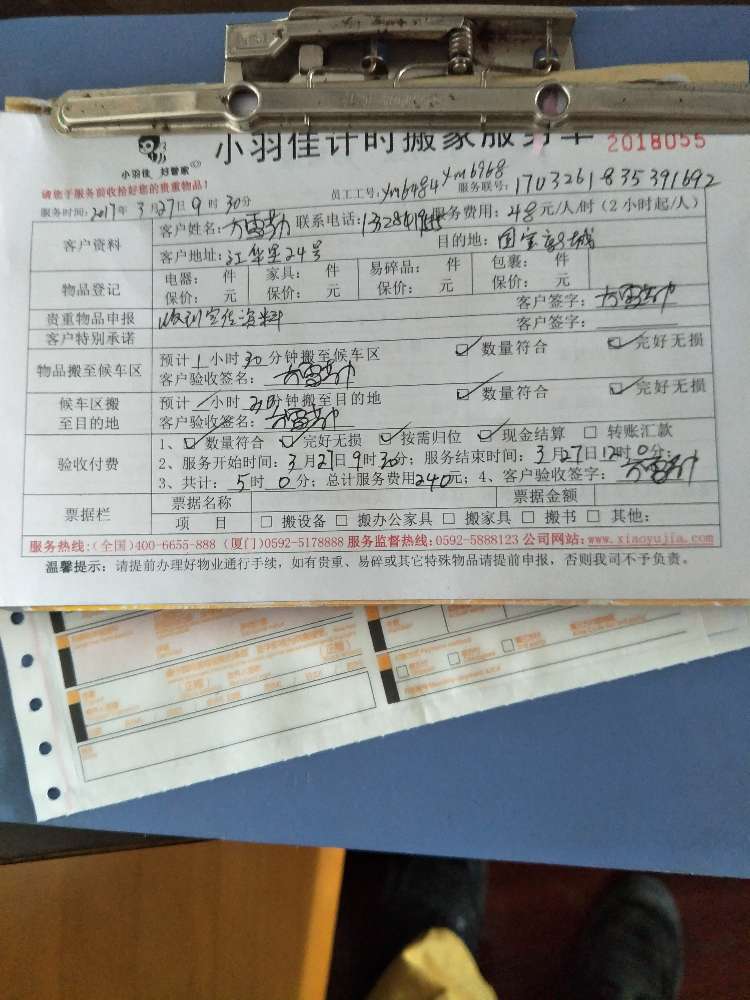 小羽佳计时搬家服务单 2018055
小羽佳 好管家
请您于服务前收拾好您的贵重物品！
员工工号：ym6484 ym6968 服务联号：1703261835391692
服务时间：2017年 3月27日9时30分
客户资料 客户姓名：方雪勤 联系电话： 服务费用：48元/人/时（2小时起/人）
客户地址：江华里24号 目的地：国宝新城
物品登记 电器： 件 家具： 件 易碎品： 件 包裹： 件
保价： 元 保价： 元 保价： 元 保价： 元
贵重物品申报 收到宣传资料 客户签字：
客户特别承诺 客户签字：
物品搬至候车区 预计1小时30分钟搬至候车区 ☑数量符合 ☑完好无损
客户验收签名：
候车区搬至目的地 预计1小时30分钟搬至目的地 ☑数量符合 ☑完好无损
客户验收签名：
验收付费 1、☑数量符合 ☑完好无损 ☑按需归位 ☑现金结算 □转账汇款
2、服务开始时间：3月27日9时30分；服务结束时间：3月27日12时0分；
3、共计：5时0分；总计服务费用240元；4、客户验收签字：
票据栏 票据名称 票据金额
项 目 □搬设备 □搬办公家具 □搬家具 □搬书 □其他：
服务热线：(全国)400-6655-888 (厦门)0592-5178888 服务监督热线：0592-5888123 公司网站：www.xiaoyujia.com
温馨提示：请提前办理好物业通行手续，如有贵重、易碎或其它特殊物品请提前申报，否则我司不予负责。